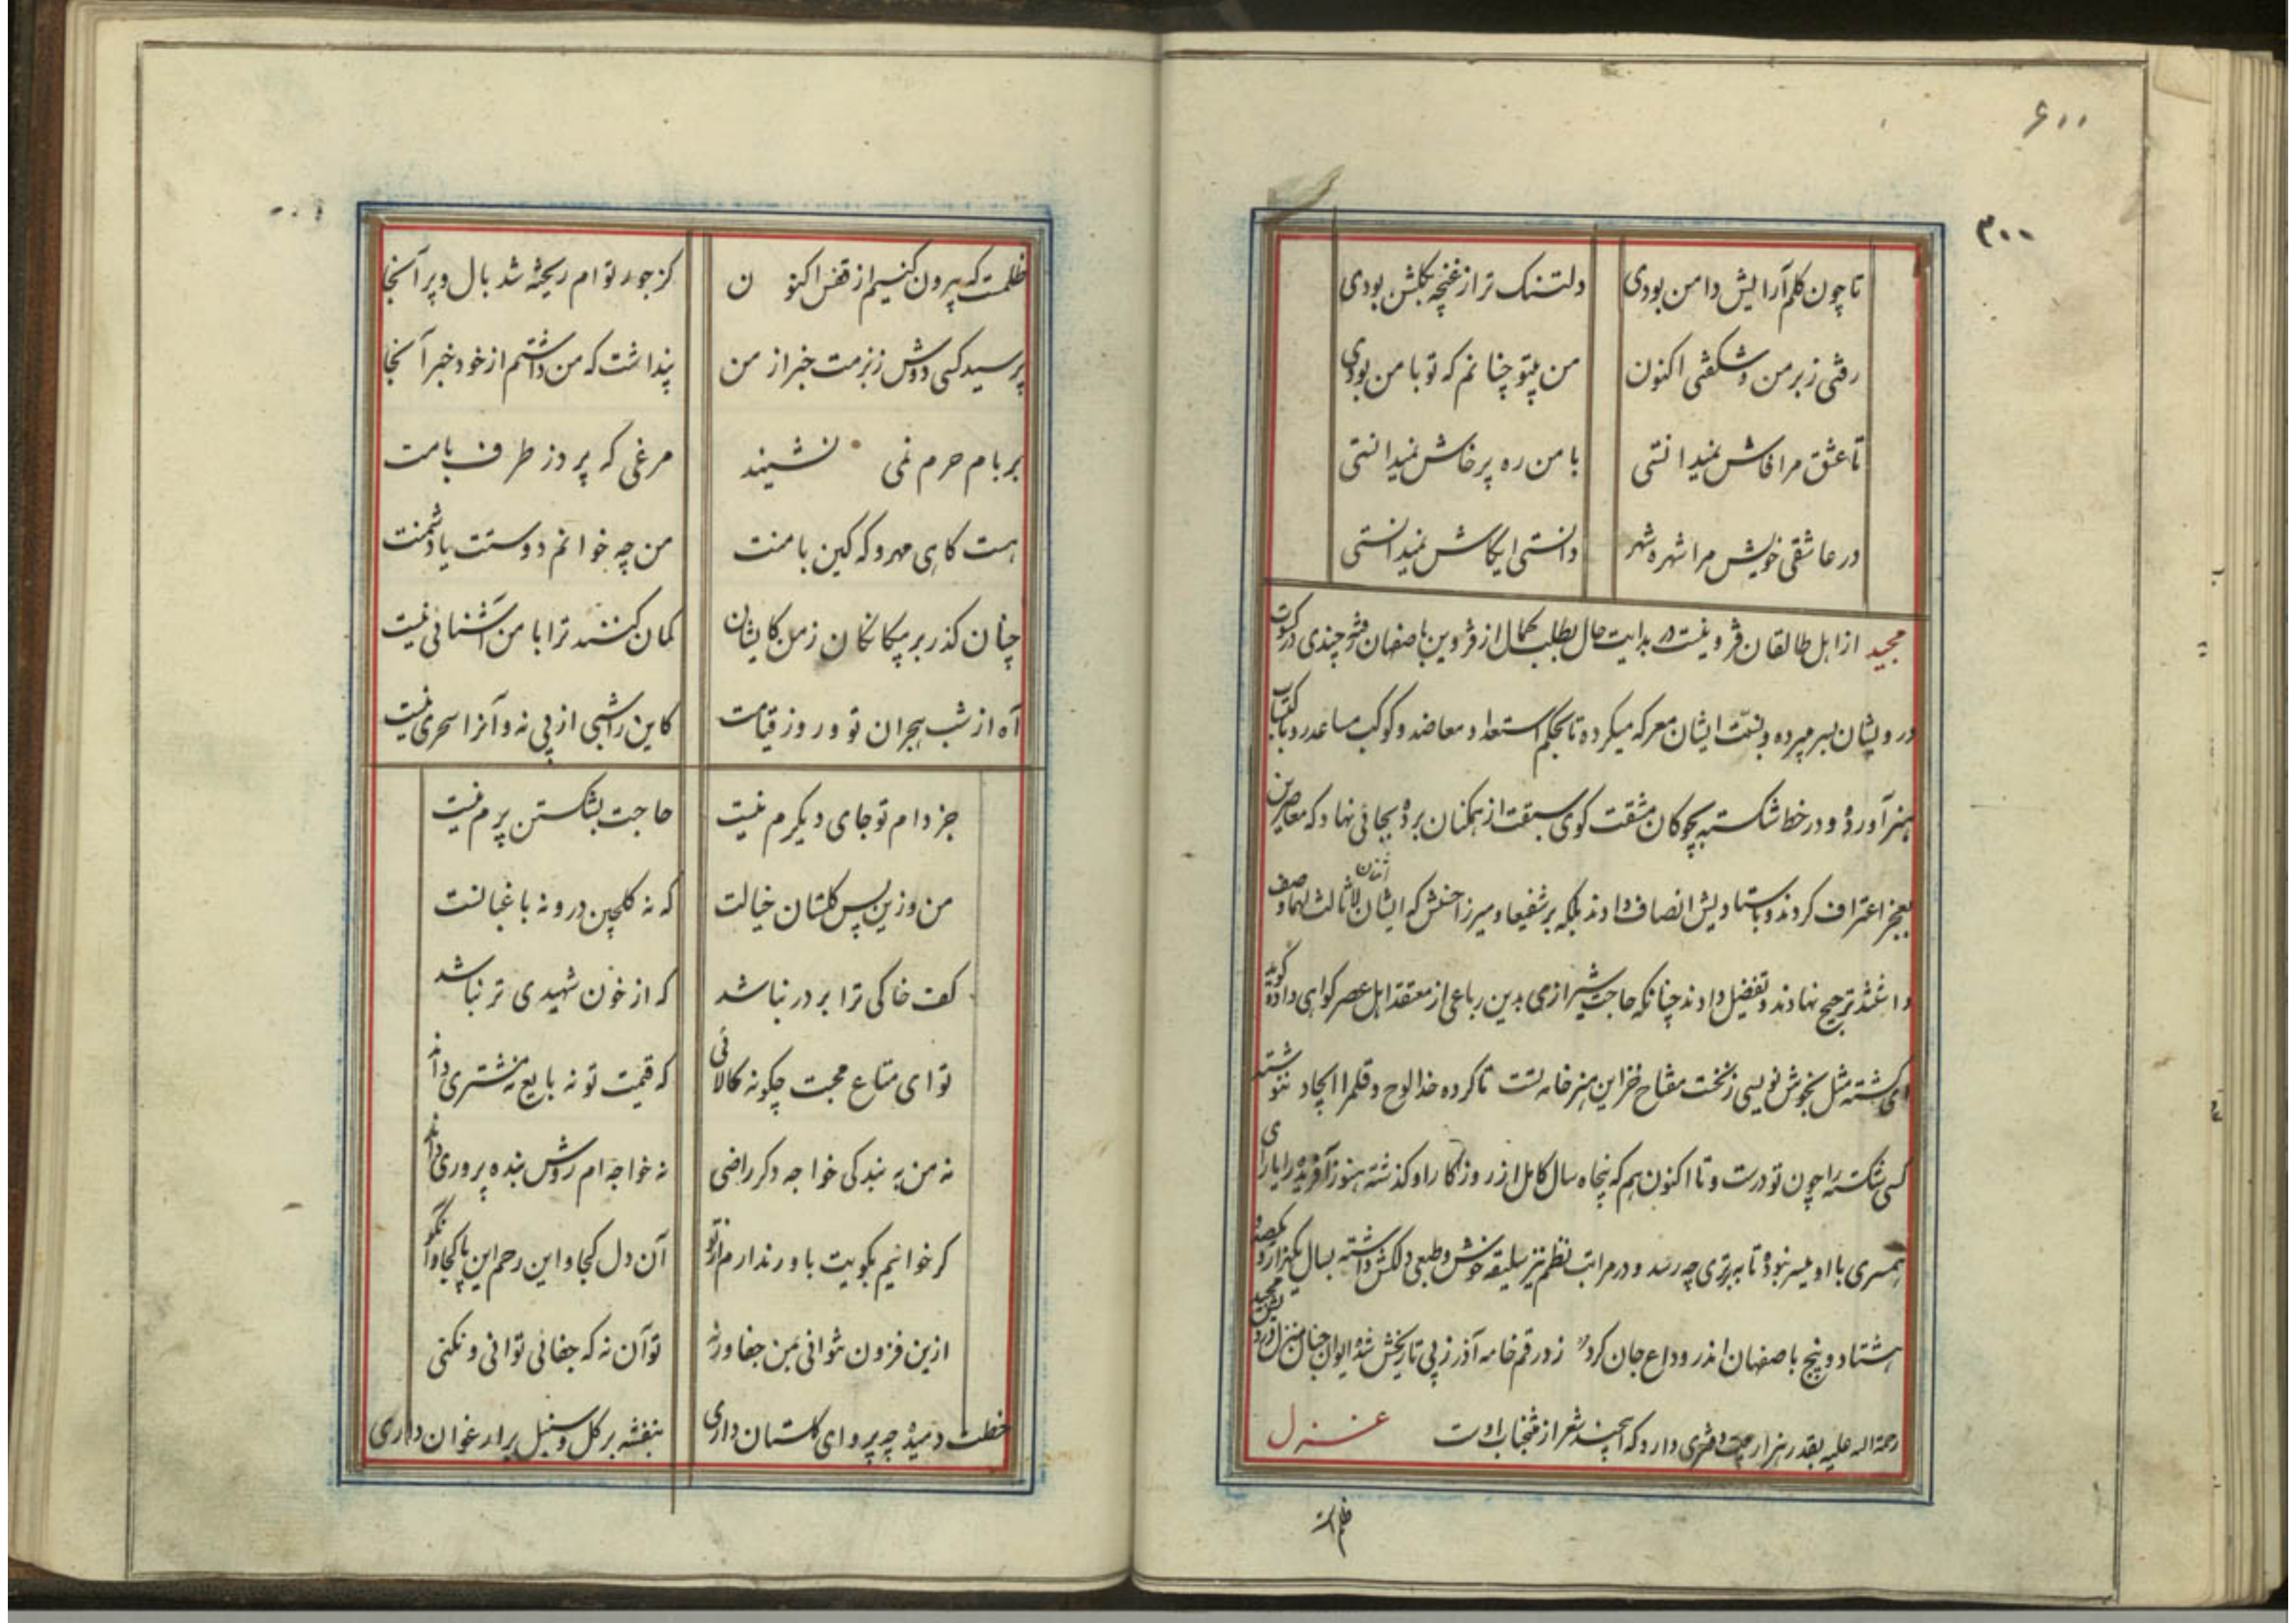 ۶۰۰
۳۰۰
تا چون گلم آرایش دامن بودی دلتنک تر از غنچه بکلشن بودی
رفتی ز بر من و شکفتی اکنون من بیتو چنانم که تو با من بودی
تا عشق مرا فاش نمیدانستی با من ره پرخاش نمیدانستی
در عاشقی خویش مرا شهره شهر دانستی ایکاش نمیدانستی
مجید از اهل طالقان قزوینست در بدایت حال بطلب کمال از قزوین باصفهان چندی در کسوت
درویشان بسر میبرده و بسنّت ایشان معرکه میکرده تا بحکم استعداد معاضد و کوکب مساعد رو باکتساب
هنر آورده و در خط شکسته بچوکان مشقت کوی سبقت از همکنان برده بجائی نهاد که معاصرین
بعجز اعتراف کردند و باستادیش انصاف دادند بلکه بر شفیعا و میرزا حسنش که ایشان لا ثالث لهما وصف
داشتند ترجیح نهادند و تفضیل دادند چنانکه حاجت شیرازی بدین رباعی از معتقد اهل عصر کواهی داده کوید
ای کشته مثل بخوش نویسی ز نخست مفتاح خزاین هنر خامه تست تا کرده خدا لوح و قلم را ایجاد ننوشته
کسی شکسته را چون تو درست و تا اکنون هم که پنجاه سال کامل از روزکار او کذشته هنوز آفریده را یارای
همسری با او میسر نبوده تا ببرتری چه رسد و در مراتب نظم نیز سلیقه خوش و طبعی دلکش داشته بسال یکهزار و یکصد و
هشتاد و پنج باصفهان اندر وداع جان کرد زد رقم خامه آذر ز پی تاریخش شده ایوان جنان منزل درویش مجید
رحمة اله علیه بقدر هزار بیت دفتری دارد که اینچند شعر از منتخباب اوست غزل
ظلمست
ظلمست که بیرون کنیم از قفس اکنون کز جور تو ام ریخته شد بال و پر آنجا
پرسید کسی دوش ز بزمت خبر از من پنداشت که من داشتم از خود خبر آنجا
بر بام حرم نمی نشیند مرغی که پرد ز طرف بامت
هست کاهی مهر و که کین با منت من چه خوانم دوستت یا دشمنت
چنان کذر بر بیکانکان ز من کایشان کمان کنند ترا با من آشنائی نیست
آه از شب هجران تو و روز قیامت کاین را شبی از پی نه و آنرا سحری نیست
جز دام تو جای دیکرم نیست حاجت بشکستن پرم نیست
من و زین پس کلستان خیالت که نه کلچین درو نه باغبانست
کف خاکی ترا بر در نباشد که از خون شهیدی تر نباشد
تو ای متاع محبت چکونه کالائی که قیمت تو نه بایع نه مشتری داند
نه من به بندکی خواجه دکر راضی نه خواجه ام روش بنده پروری داند
کر خوانیم بکویت باور ندارم از تو آن دل کجا و این رحم این پا کجا و آن کو
ازین فزون نتوانی بمن جفا ورنه تو آن نه که جفائی توانی و نکنی
خطت دمیده چه پروای کلستان داری بنفشه بر کل و سنبل بر ارغوان داری